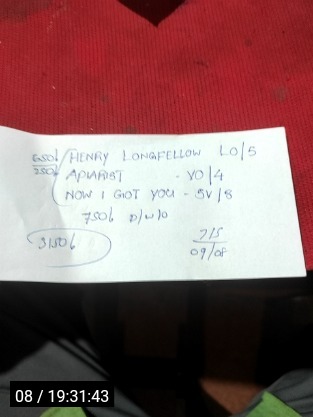 650b/ HENRY LONGFELLOW LO/5
250b APIARIST - YO/4
NOW I GOT YOU - SV/8
750b D/W/O
3150b
7/5
09/08
08 / 19:31:43